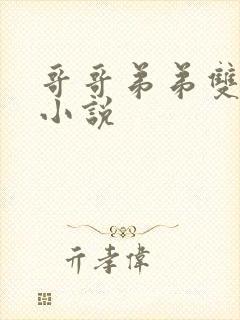 哥哥弟弟雙
小說
亓孝偉